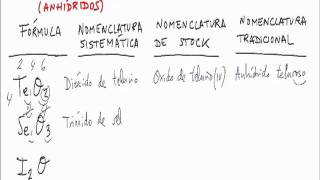 (ANHÍDRIDOS)
FÓRMULA NOMENCLATURA SISTEMÁTICA NOMENCLATURA DE STOCK NOMENCLATURA TRADICIONAL
2 4 6
4 Te₁O₂ Dióxido de telurio Óxido de teluro(IV) Anhídrido teluroso
Se₁O₃ Trióxido de sel
I₂O